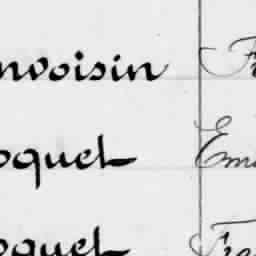 nvoisin F
oquet Em
oquet Fra